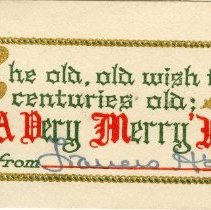 he old, old wish
centuries old;
A Very Merry
from Francis